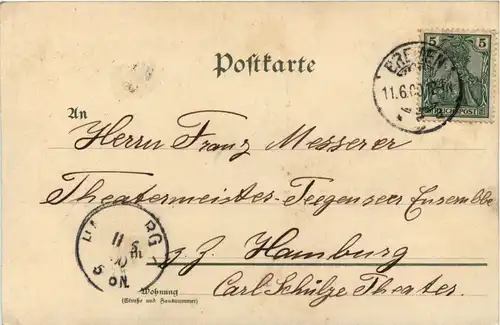 Postkarte
5 5
REICHSPOST
BREMEN
11.6.00
An
Herrn Franz Messerer
Theatermeister-Tegernseer Ensemble
z. Z. Hamburg
HAMBURG
11 6
00
5-6N.
Wohnung
(Straße und Hausnummer)
Carl Schülze Theater.